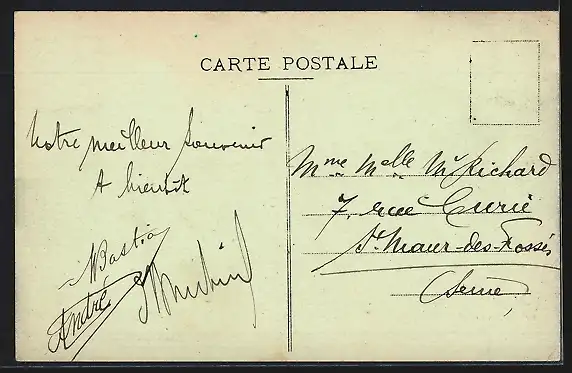 CARTE POSTALE
Notre meilleur souvenir
A bientôt
André
Mme Melle Mr Richard
7, rue Curie
St. Maur-des-Fossés
(Seine)